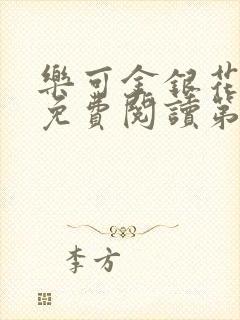 樂可金銀花
免費閱讀第
李方